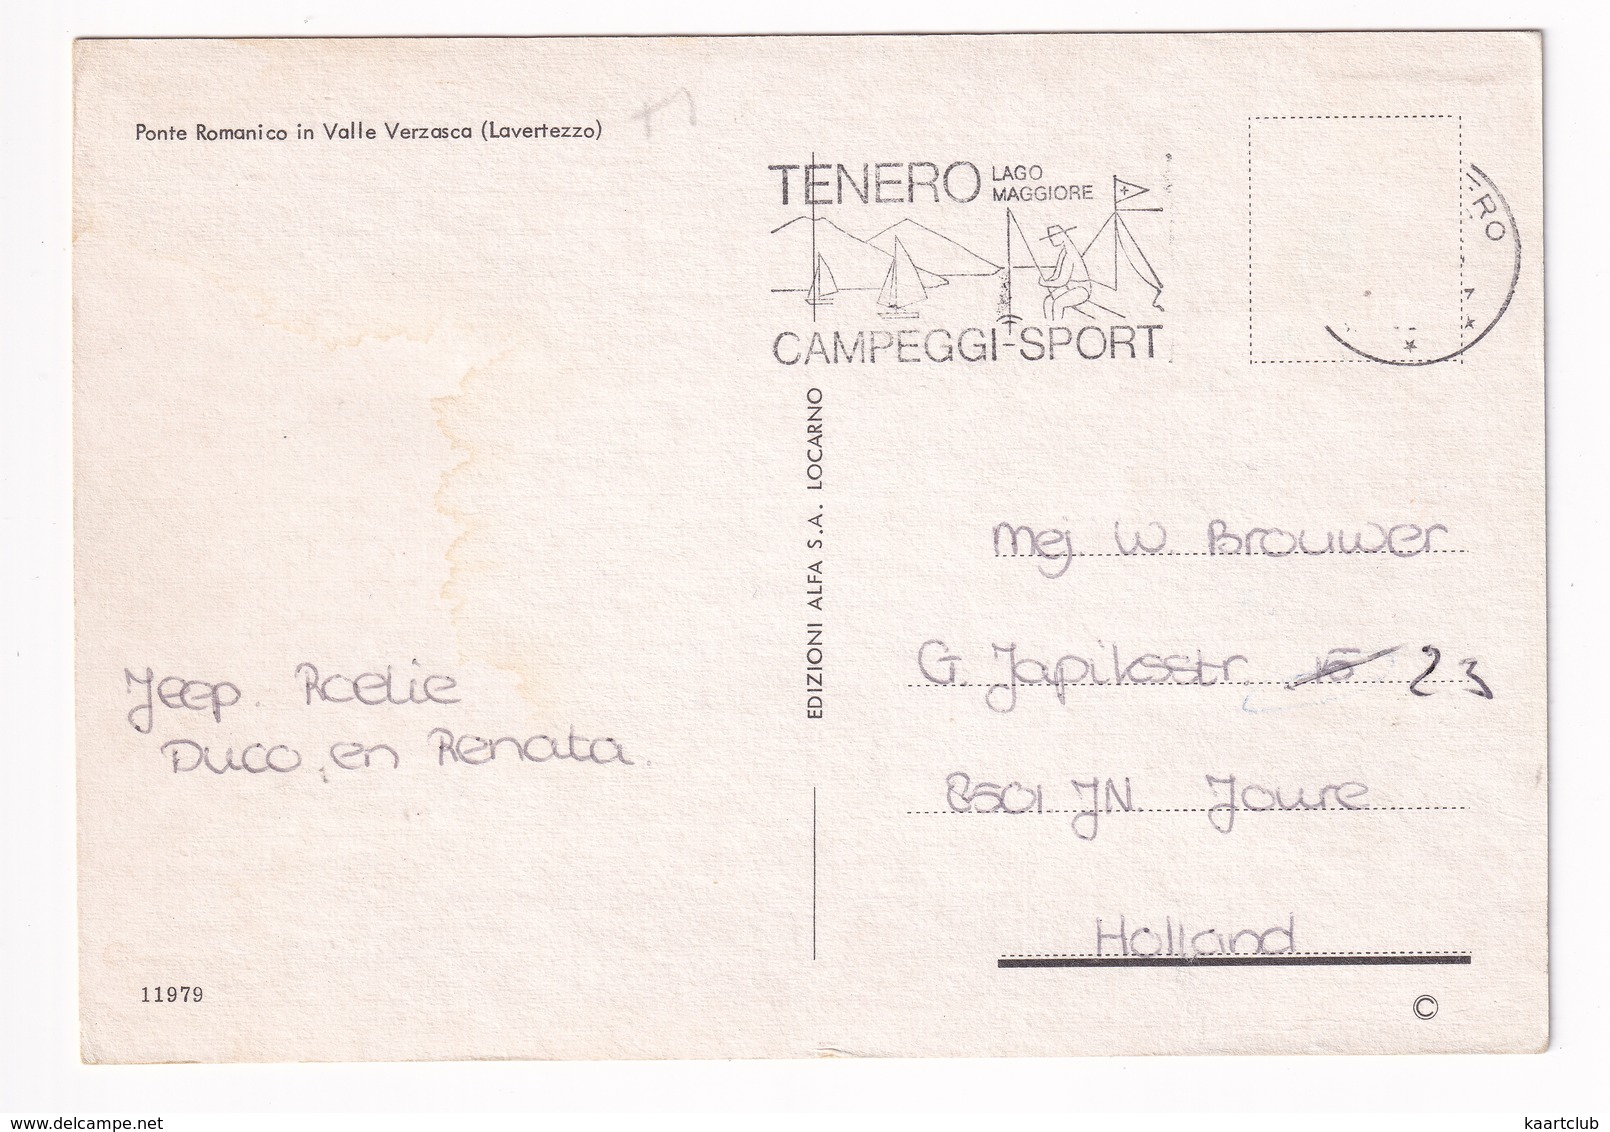 Ponte Romanico in Valle Verzasca (Lavertezzo)
TENERO LAGO
MAGGIORE
CAMPEGGI-SPORT
ERO
EDIZIONI ALFA S.A. LOCARNO
Mej. W. Brouwer
G. Japiksstr. 15 23
8501 JN. Joure
Holland
Jeep. Roelie
Duco, en Renata.
11979
©
delcampe.net
kaartclub